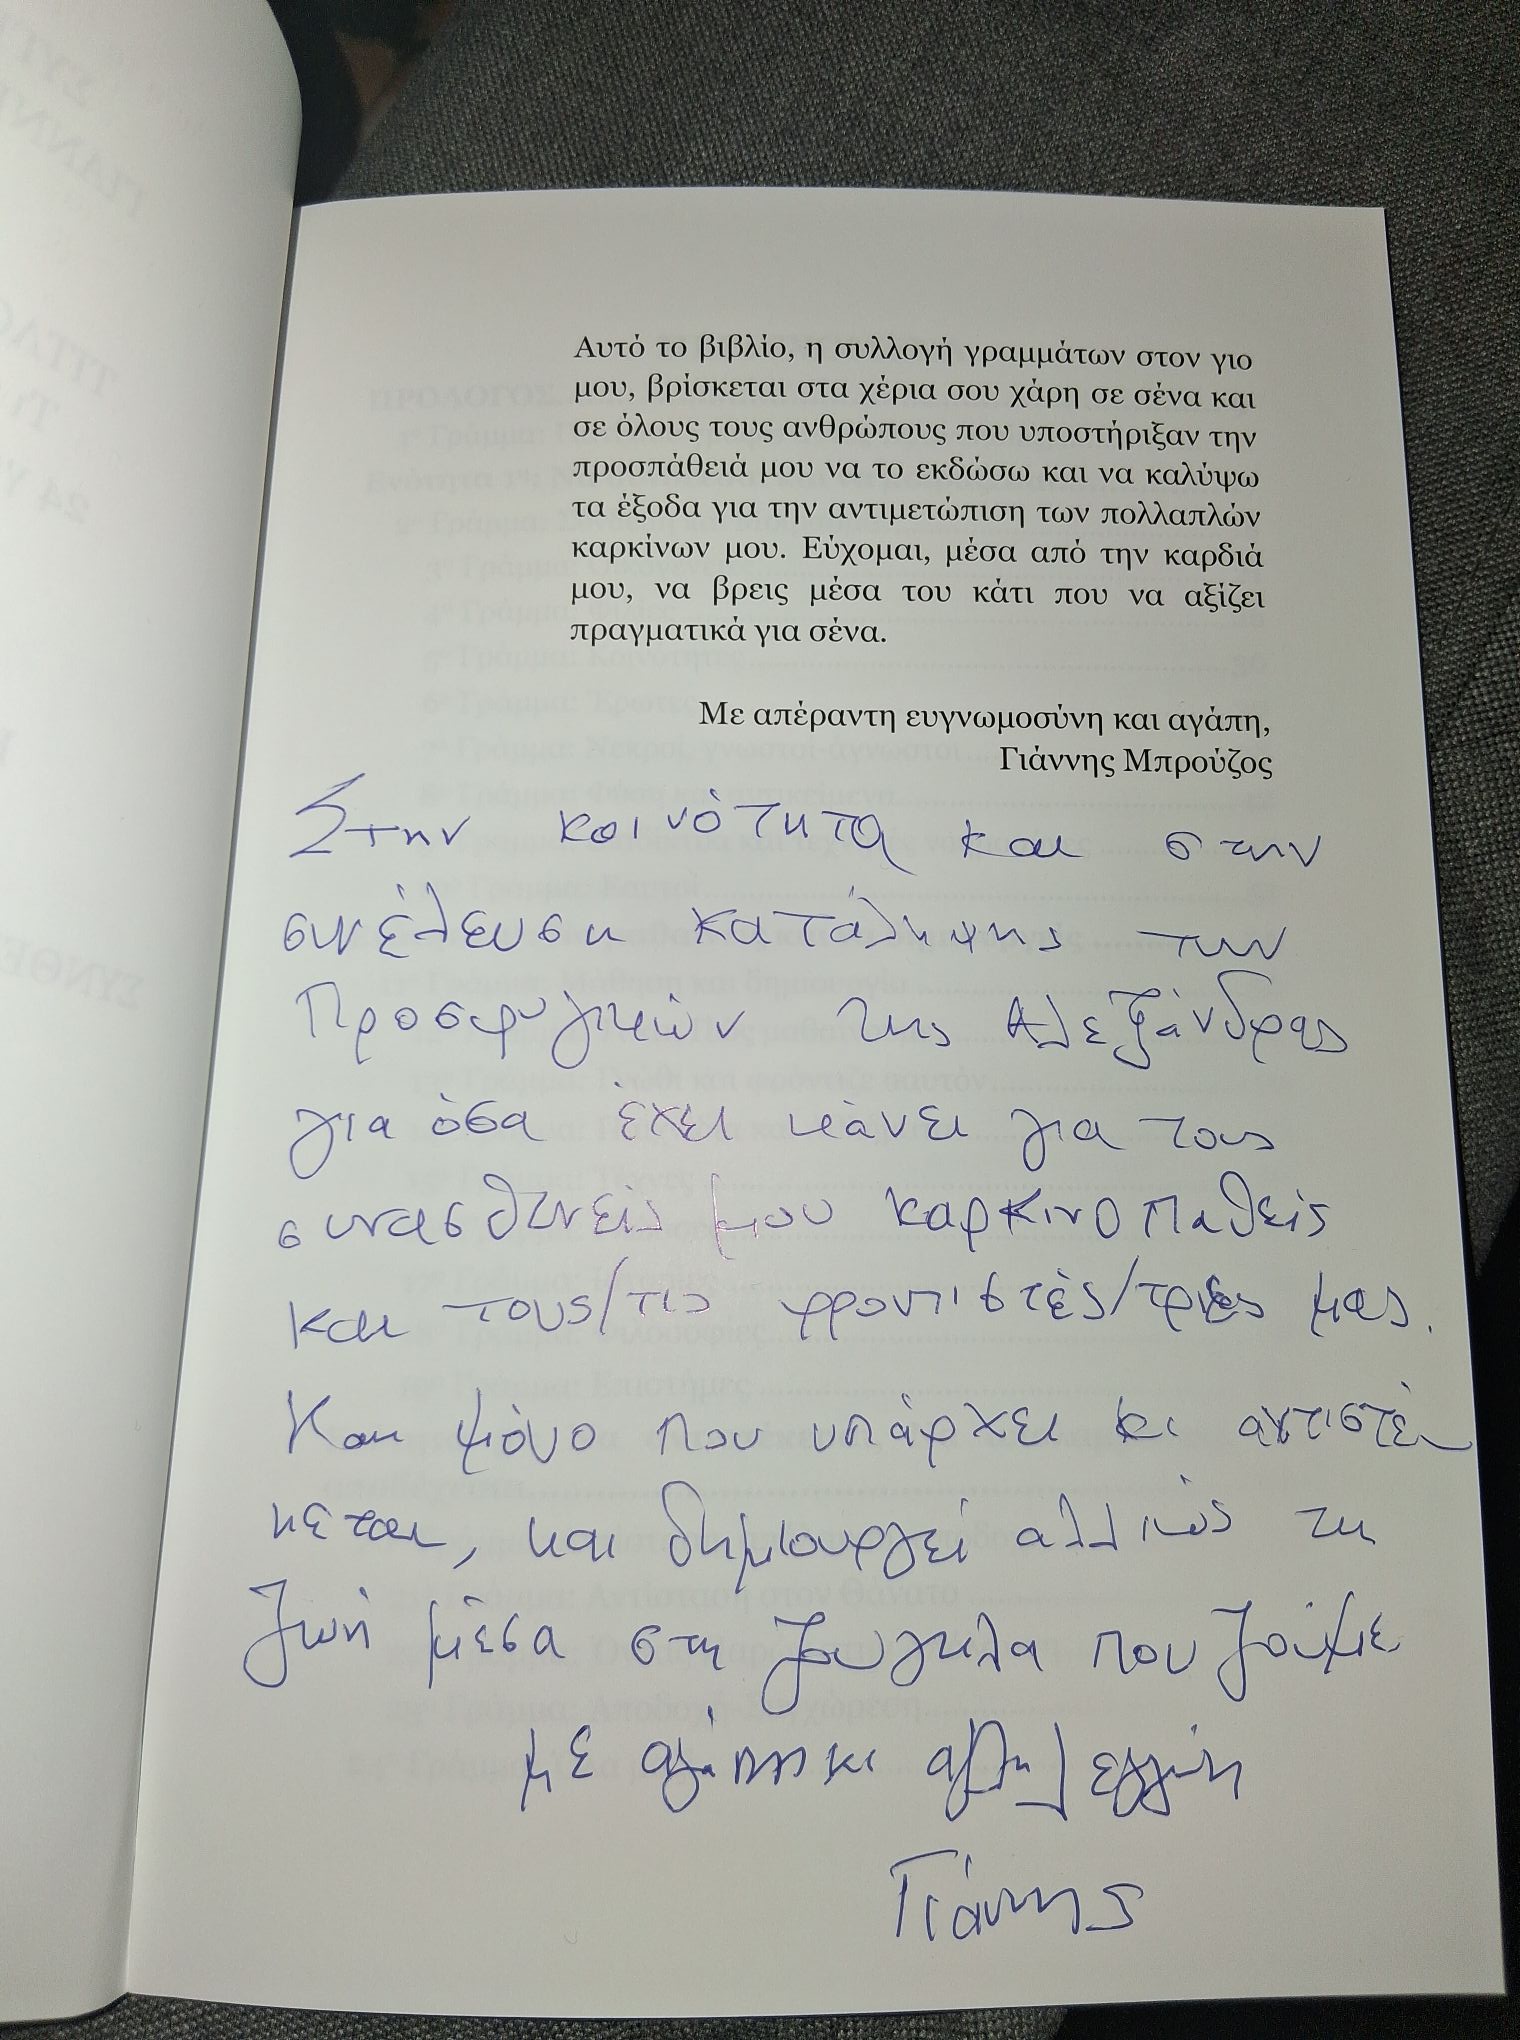 Αυτό το βιβλίο, η συλλογή γραμμάτων στον γιο
μου, βρίσκεται στα χέρια σου χάρη σε σένα και
σε όλους τους ανθρώπους που υποστήριξαν την
προσπάθειά μου να το εκδώσω και να καλύψω
τα έξοδα για την αντιμετώπιση των πολλαπλών
καρκίνων μου. Εύχομαι, μέσα από την καρδιά
μου, να βρεις μέσα του κάτι που να αξίζει
πραγματικά για σένα.
Με απέραντη ευγνωμοσύνη και αγάπη,
Γιάννης Μπρούζος
Στην κοινότητα και στην
συνέλευση κατάληψης των
Προσφυγικών της Αλεξάνδρας
για όσα έχει κάνει για τους
συνασθενείς μου καρκινοπαθείς
και τους/τις φροντιστές/τριες μας.
Και μόνο που υπάρχει κι αντιστέ-
κεται, και δημιουργεί αλλιώς τη
ζωή μέσα στη ζούγκλα που ζούμε
με αγάπη κι αλληλεγγύη
Γιάννης